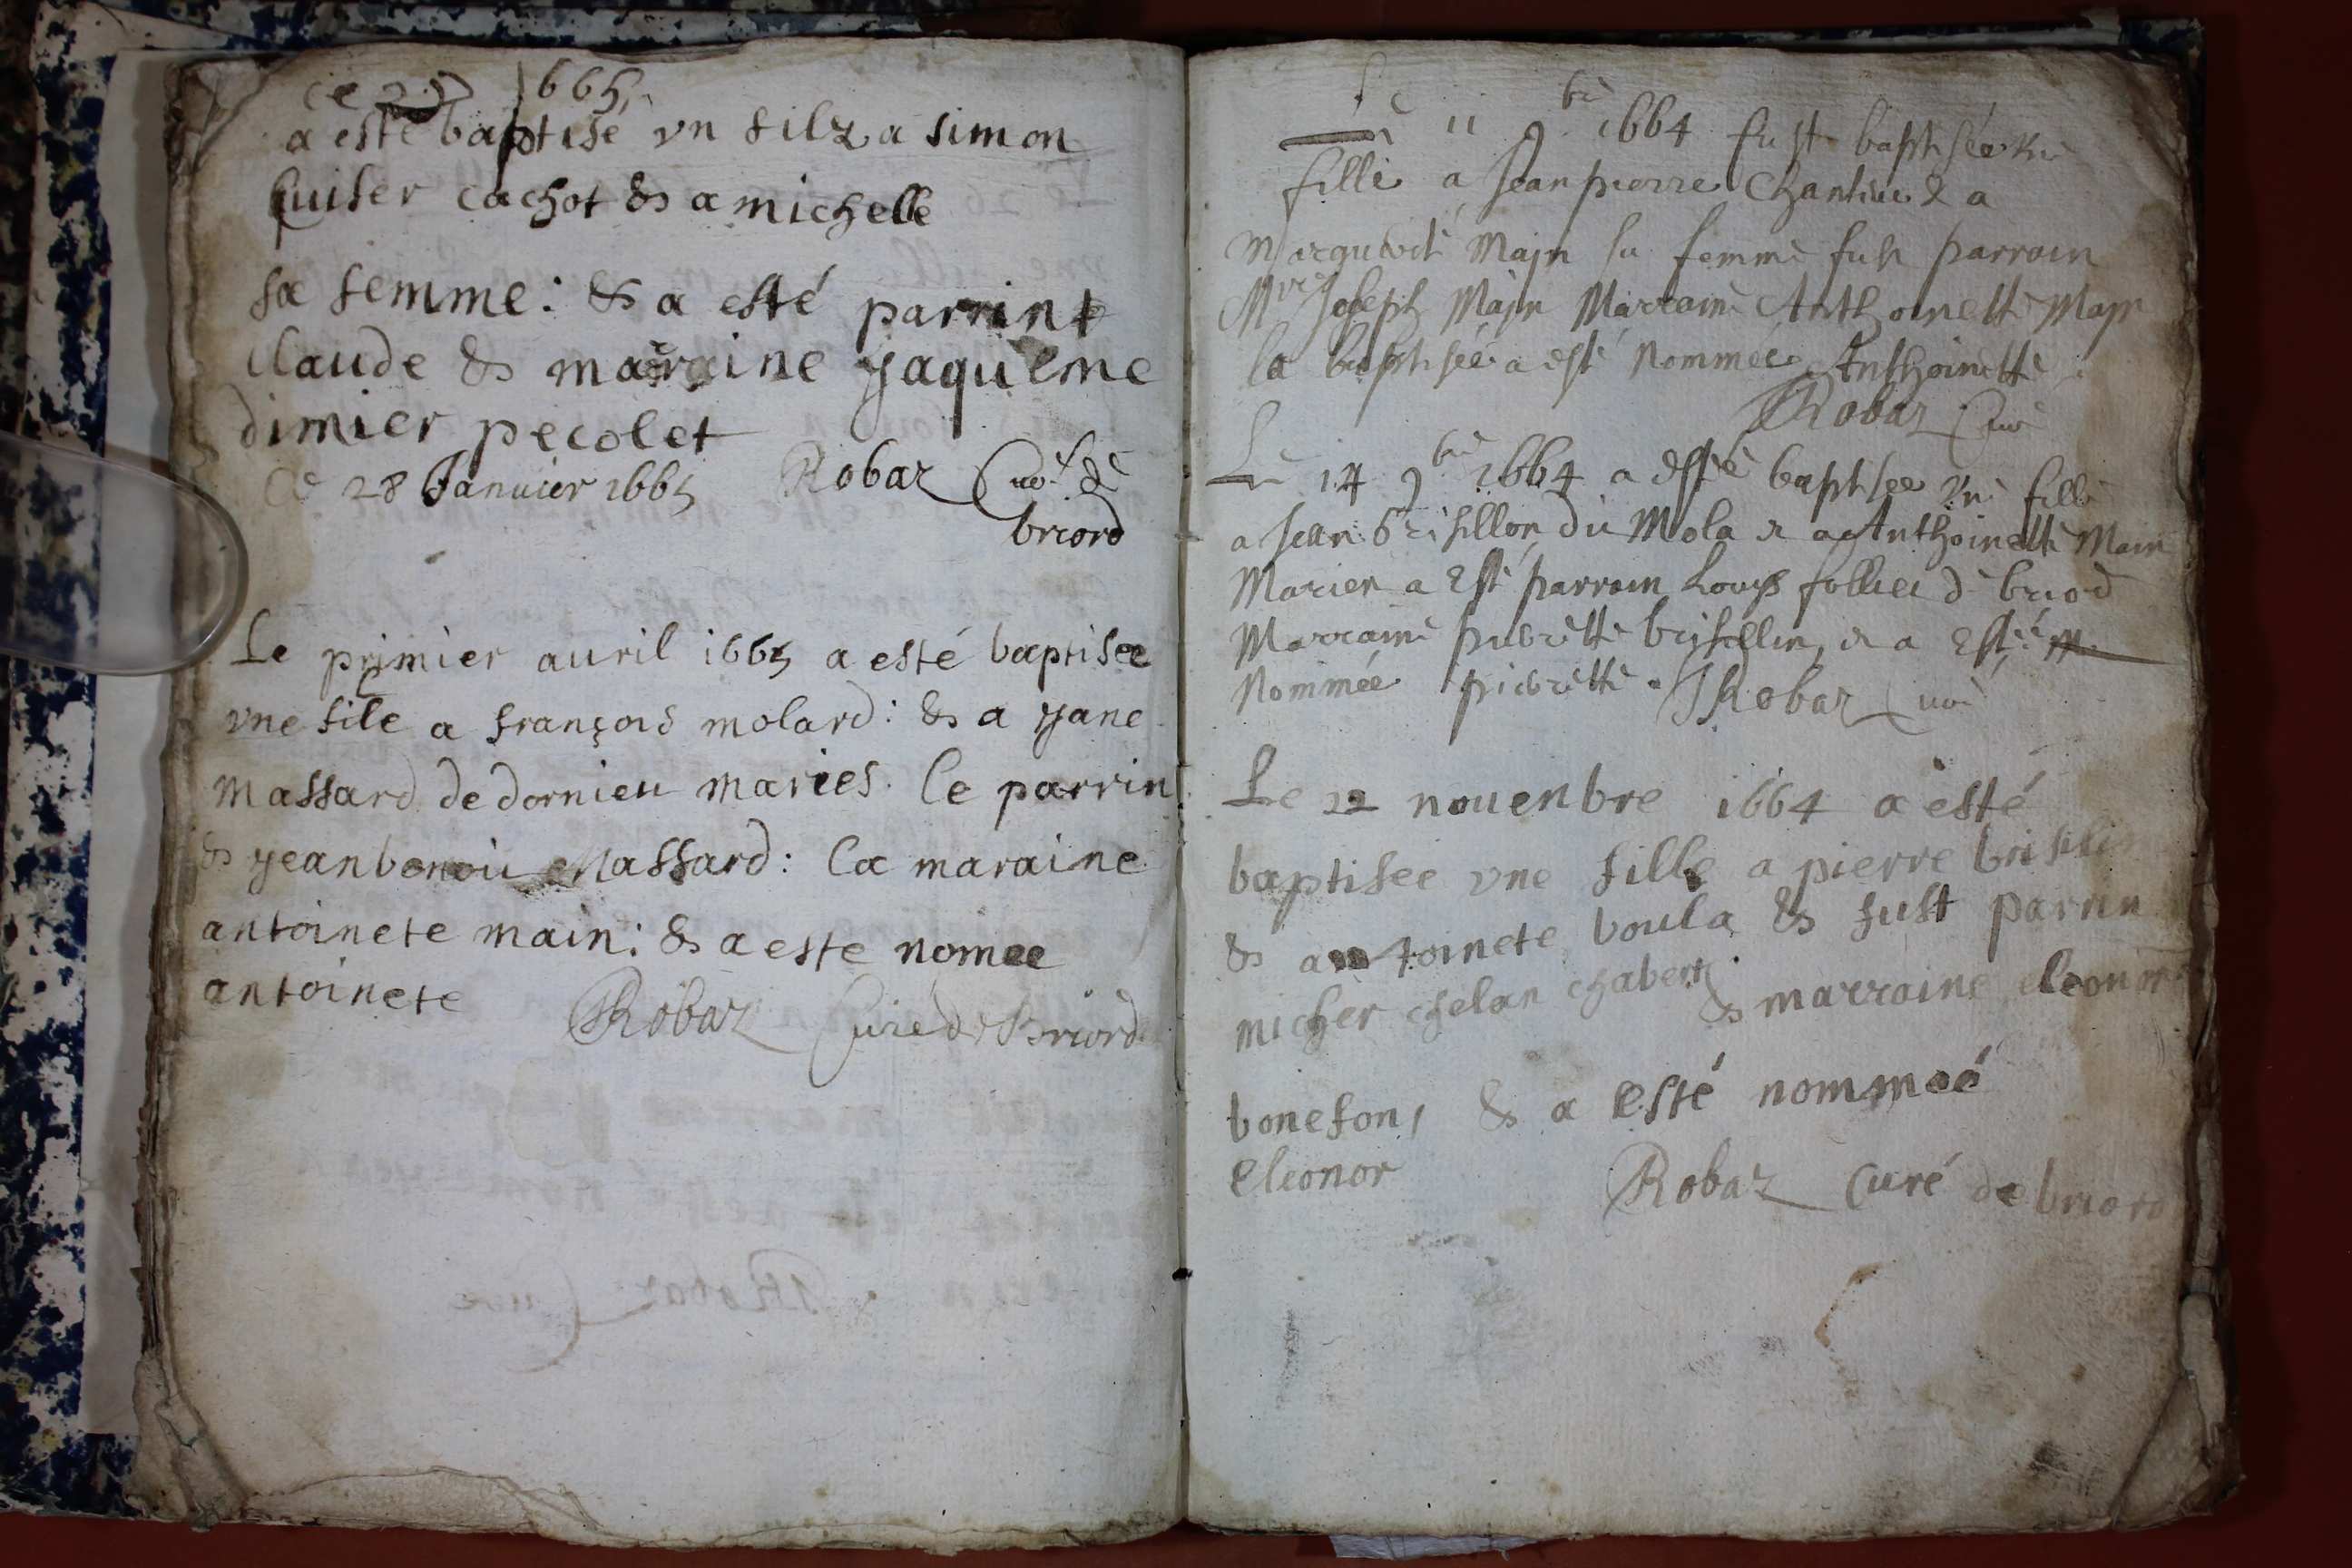 1665
a esté baptisé vn filz a simon
cachot & a michelle
sa femme: & a esté parrint
claude & maraine yaqueme
dimier pecolet
Ce 28 Januier 1665 Robaz Curé de
briord
Le primier auril 1665 a esté baptisee
vne file a françois molard: & a yane
massard de dornieu maries. le parrin
& yean benoi Massard: la maraine
antoinete main: & a este nomee
antoinete Robaz Curé de Briord
Le 11 9bre 1664 fust baptisée vne
fille a Jean pierre & a
Majn sa femme fust parrain
Mre Joseph Majn Marraine Anthoinette Majn
la baptisée a esté Nommée Anthoinette
Robaz Curé
Le 14 9bre 1664 a esté baptisee vne fille
a Jean brisillon du Mola & a Anthoinette Main
Mariez a Esté parrain Louys de briord
Marraine pierrette & a Esté
Nommée pierrette. Robaz Curé
Le 22 nouenbre 1664 a esté
baptisee vne fille a pierre
& antoinete boula & fust parrin
micher chelan chabert & marraine eleonor
bonefon, & a esté nommeé
Eleonor Robaz Curé de briord